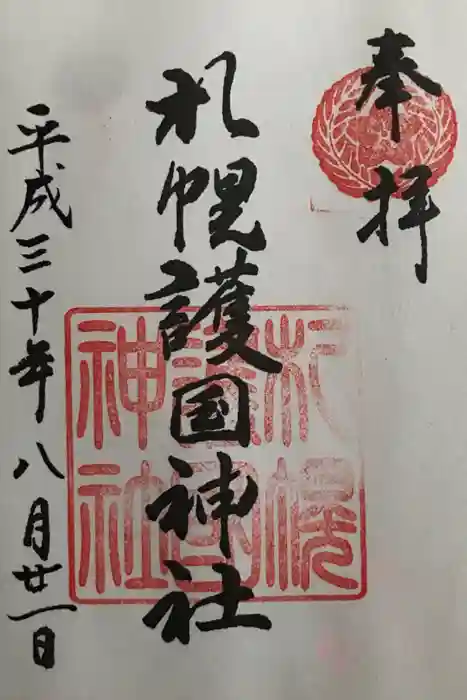 奉拝
札幌護国神社
平成三十年八月廿一日
札幌護国神社